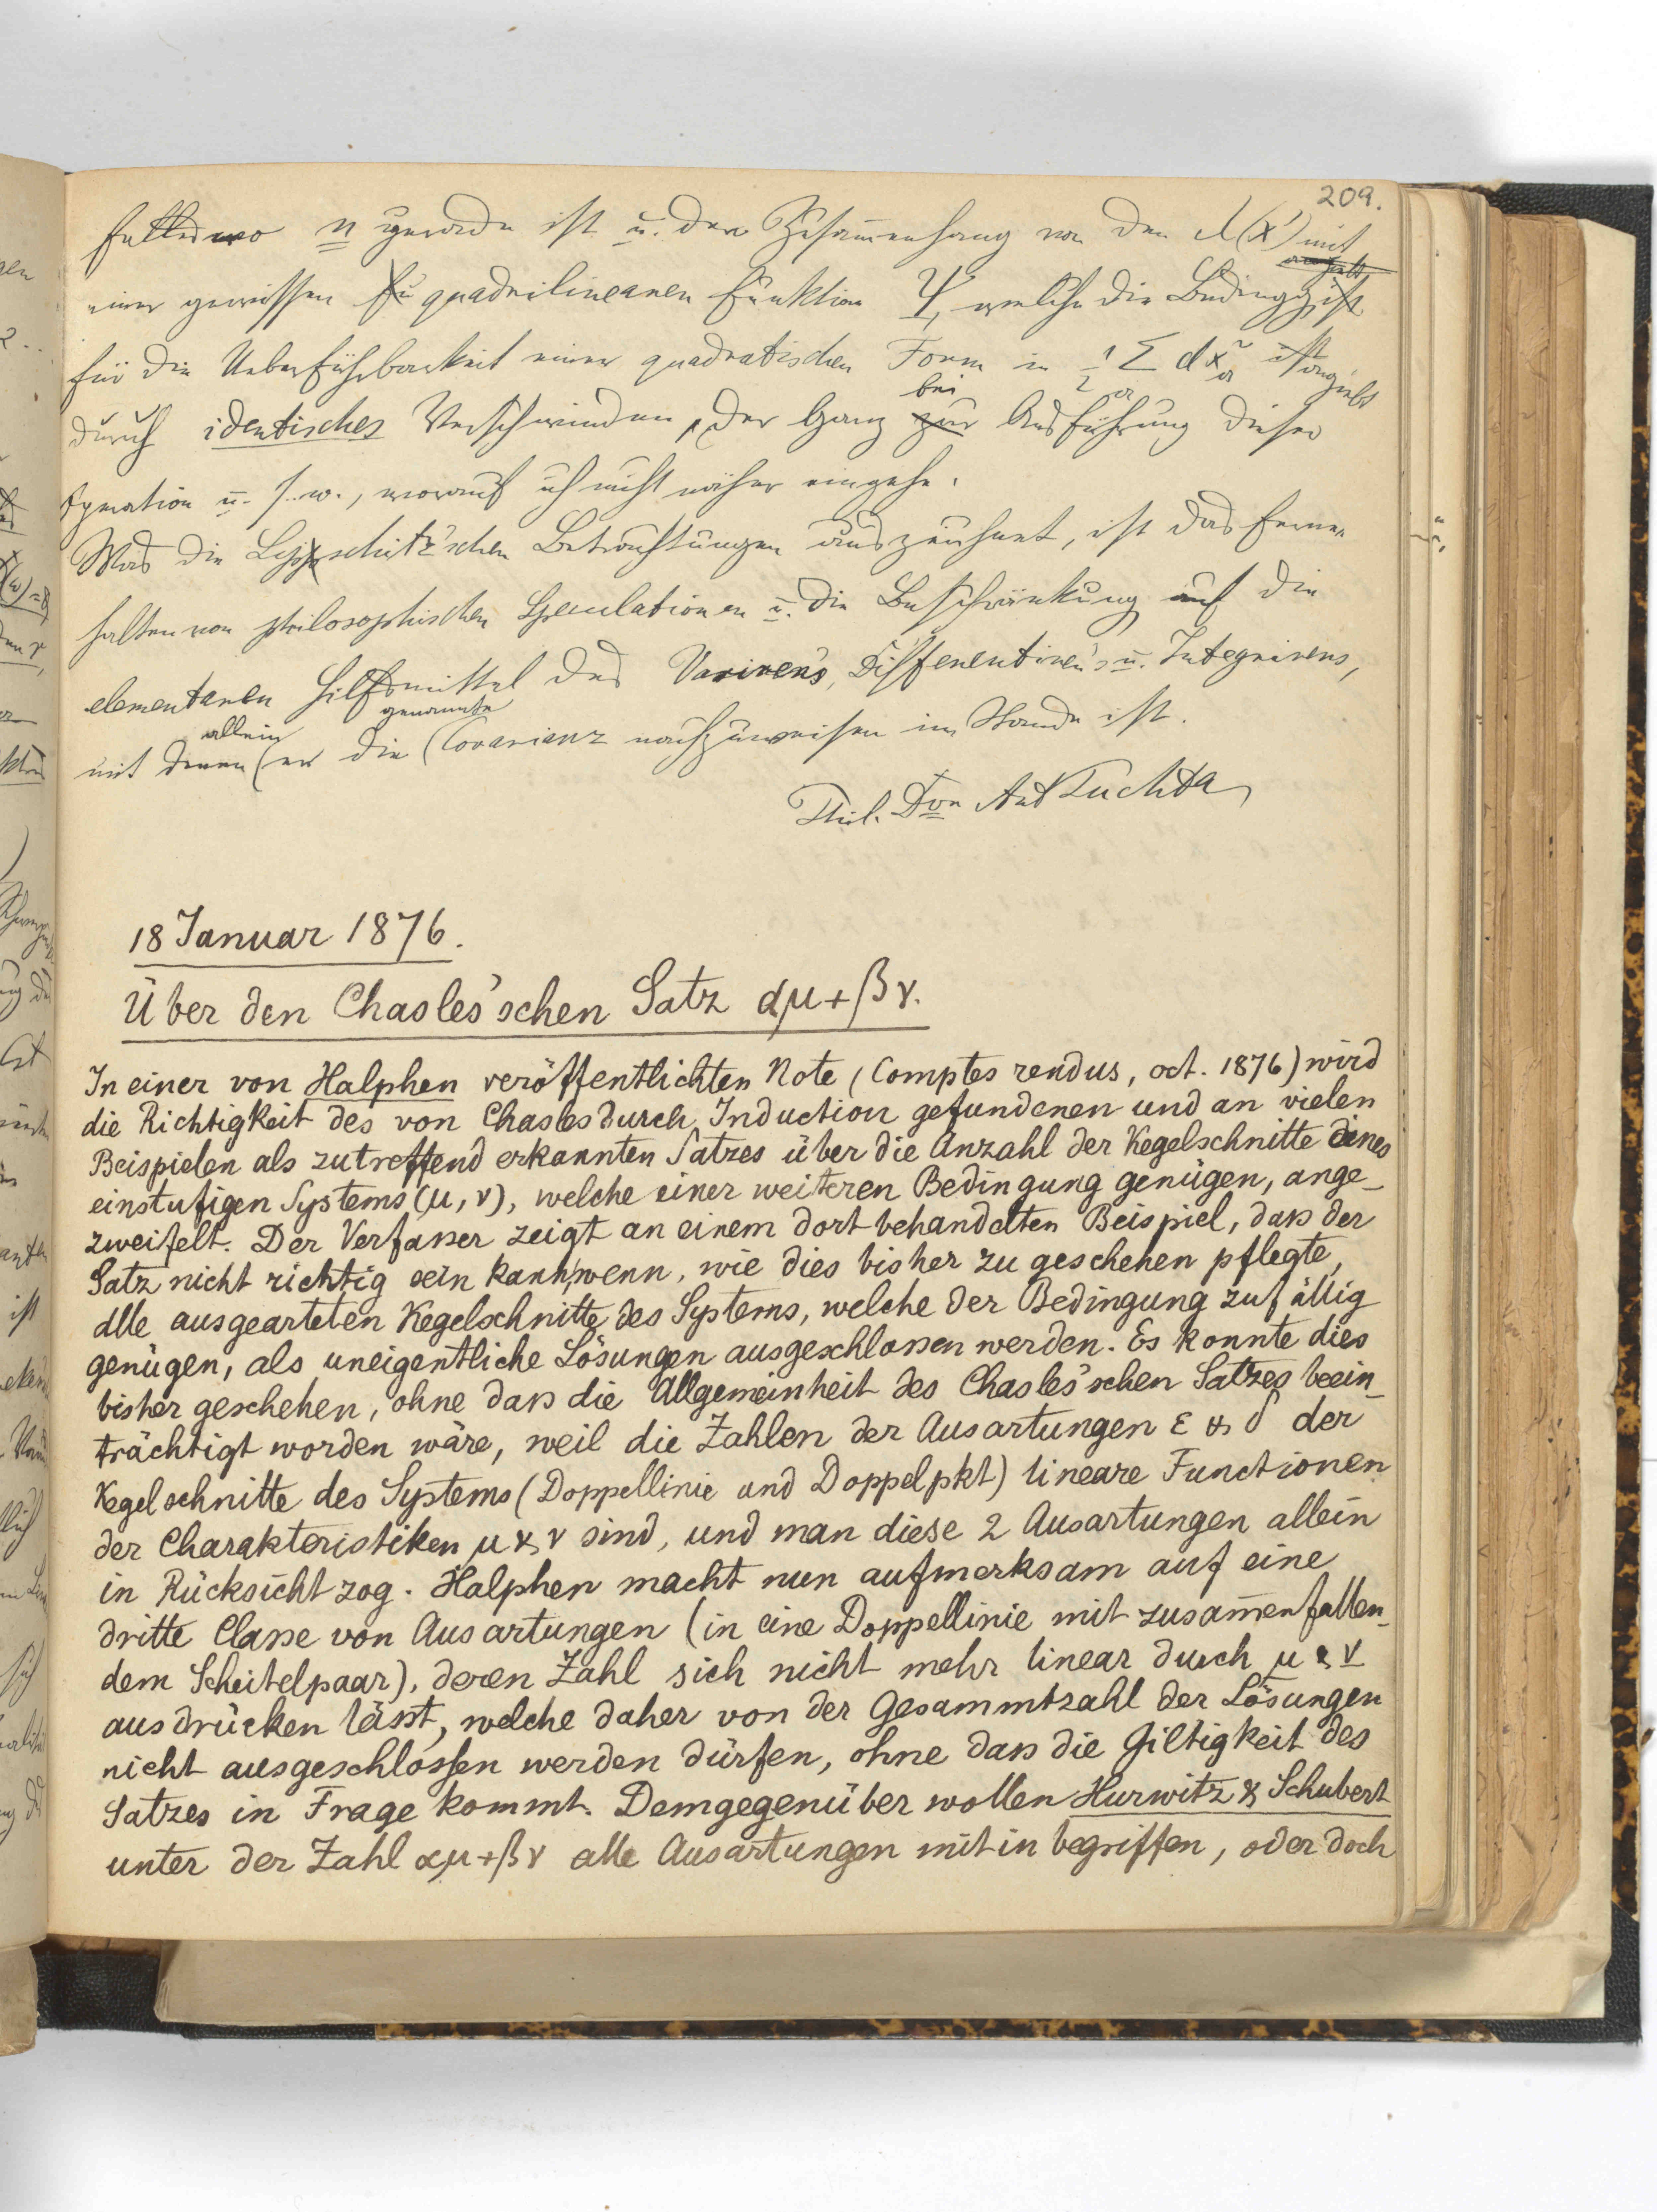 209.
Falles wo n gerade ist u. den Zusam̄enhang von den (x') mit
einer gewissen quadrilinearen Funktion Ψ, welche die Bedingg ist
für die Ueberführbarkeit einer quadratischen Form in ½ Σ dx²ₐ angiebt
durch identisches Verschwinden, der Gang bei zur Ausführung dieser
Operation u. s. w., worauf ich nicht näher eingehe.
Was die Lipschitz'schen Betrachtungen auszeichnet, ist das Ferne
halten von philosophischen Speculationen u. die Beschränkung auf die
elementaren Hilfsmittel des Variiren's, Differentiiren's u. Integrirens,
mit denen allein er die genannte Covarianz nachzuweisen im Stande ist.
Phil. Dor Ant Puchta
18 Januar 1876.
Über den Chasles'schen Satz αμ+βν.
In einer von Halphen veröffentlichten Note (Comptes rendus, oct. 1876) wird
die Richtigkeit des von Chasles durch Induction gefundenen und an vielen
Beispielen als zutreffend erkannten Satzes über die Anzahl der Kegelschnitte eines
einstufigen Systems (μ, ν), welche einer weiteren Bedingung genügen, ange-
zweifelt. Der Verfasser zeigt an einem dort behandelten Beispiel, dass der
Satz nicht richtig sein kann, wenn, wie dies bisher zu geschehen pflegte,
alle ausgearteten Kegelschnitte des Systems, welche der Bedingung zufällig
genügen, als uneigentliche Lösungen ausgeschlossen werden. Es konnte dies
bisher geschehen, ohne dass die Allgemeinheit des Chasles'schen Satzes beein-
trächtigt worden wäre, weil die Zahlen der Ausartungen ε & δ der
Kegelschnitte des Systems (Doppellinie und Doppelpkt) lineare Functionen
der Charakteristiken μ & ν sind, und man diese 2 Ausartungen allein
in Rücksicht zog. Halphen macht nun aufmerksam auf eine
dritte Classe von Ausartungen (in eine Doppellinie mit zusam̄enfallen-
dem Scheitelpaar), deren Zahl sich nicht mehr linear durch μ & ν
ausdrücken lässt, welche daher von der Gesammtzahl der Lösungen
nicht ausgeschlossen werden dürfen, ohne dass die Giltigkeit des
Satzes in Frage kommt. Demgegenüber wollen Hurwitz & Schubert
unter der Zahl αμ+βν alle Ausartungen mit inbegriffen, oder doch